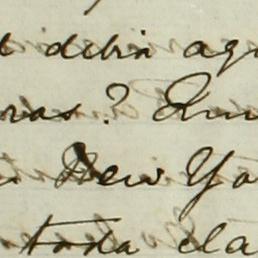 debia aqu
ras? Qu
New Yo
toda cla